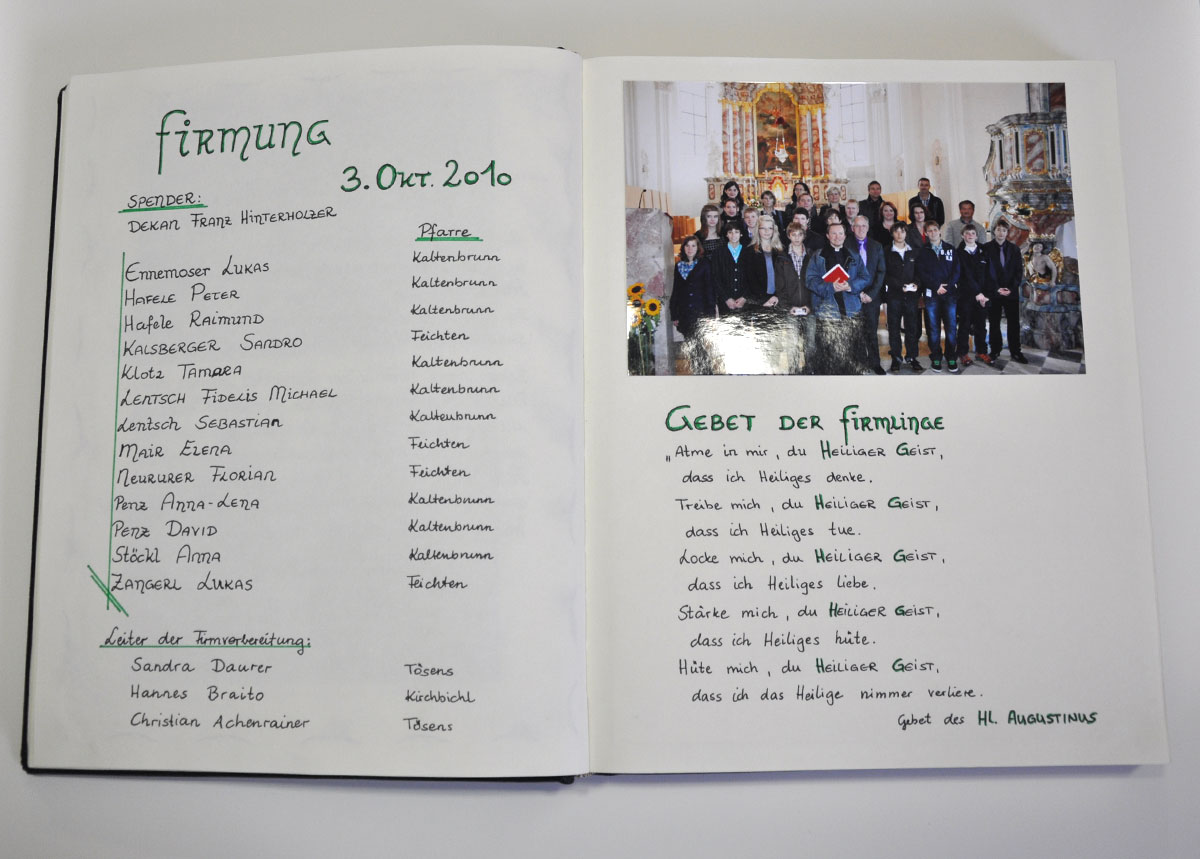 Firmung
3. Okt. 2010
Spender:
Dekan Franz Hinterholzer
Pfarre
Ennemoser Lukas Kaltenbrunn
Hafele Peter Kaltenbrunn
Hafele Raimund Kaltenbrunn
Kalsberger Sandro Feichten
Klotz Tamara Kaltenbrunn
Lentsch Fidelis Michael Kaltenbrunn
Lentsch Sebastian Kaltenbrunn
Mair Elena Feichten
Neururer Florian Feichten
Penz Anna-Lena Kaltenbrunn
Penz David Kaltenbrunn
Stöckl Anna Kaltenbrunn
Zangerl Lukas Feichten
Leiter der Firmvorbereitung:
Sandra Daurer Tösens
Hannes Braito Kirchbichl
Christian Achenrainer Tösens
Gebet der Firmlinge
„Atme in mir, du Heiliger Geist,
dass ich Heiliges denke.
Treibe mich, du Heiliger Geist,
dass ich Heiliges tue.
Locke mich, du Heiliger Geist,
dass ich Heiliges liebe.
Stärke mich, du Heiliger Geist,
dass ich Heiliges hüte.
Hüte mich, du Heiliger Geist,
dass ich das Heilige nimmer verliere.
Gebet des Hl. Augustinus